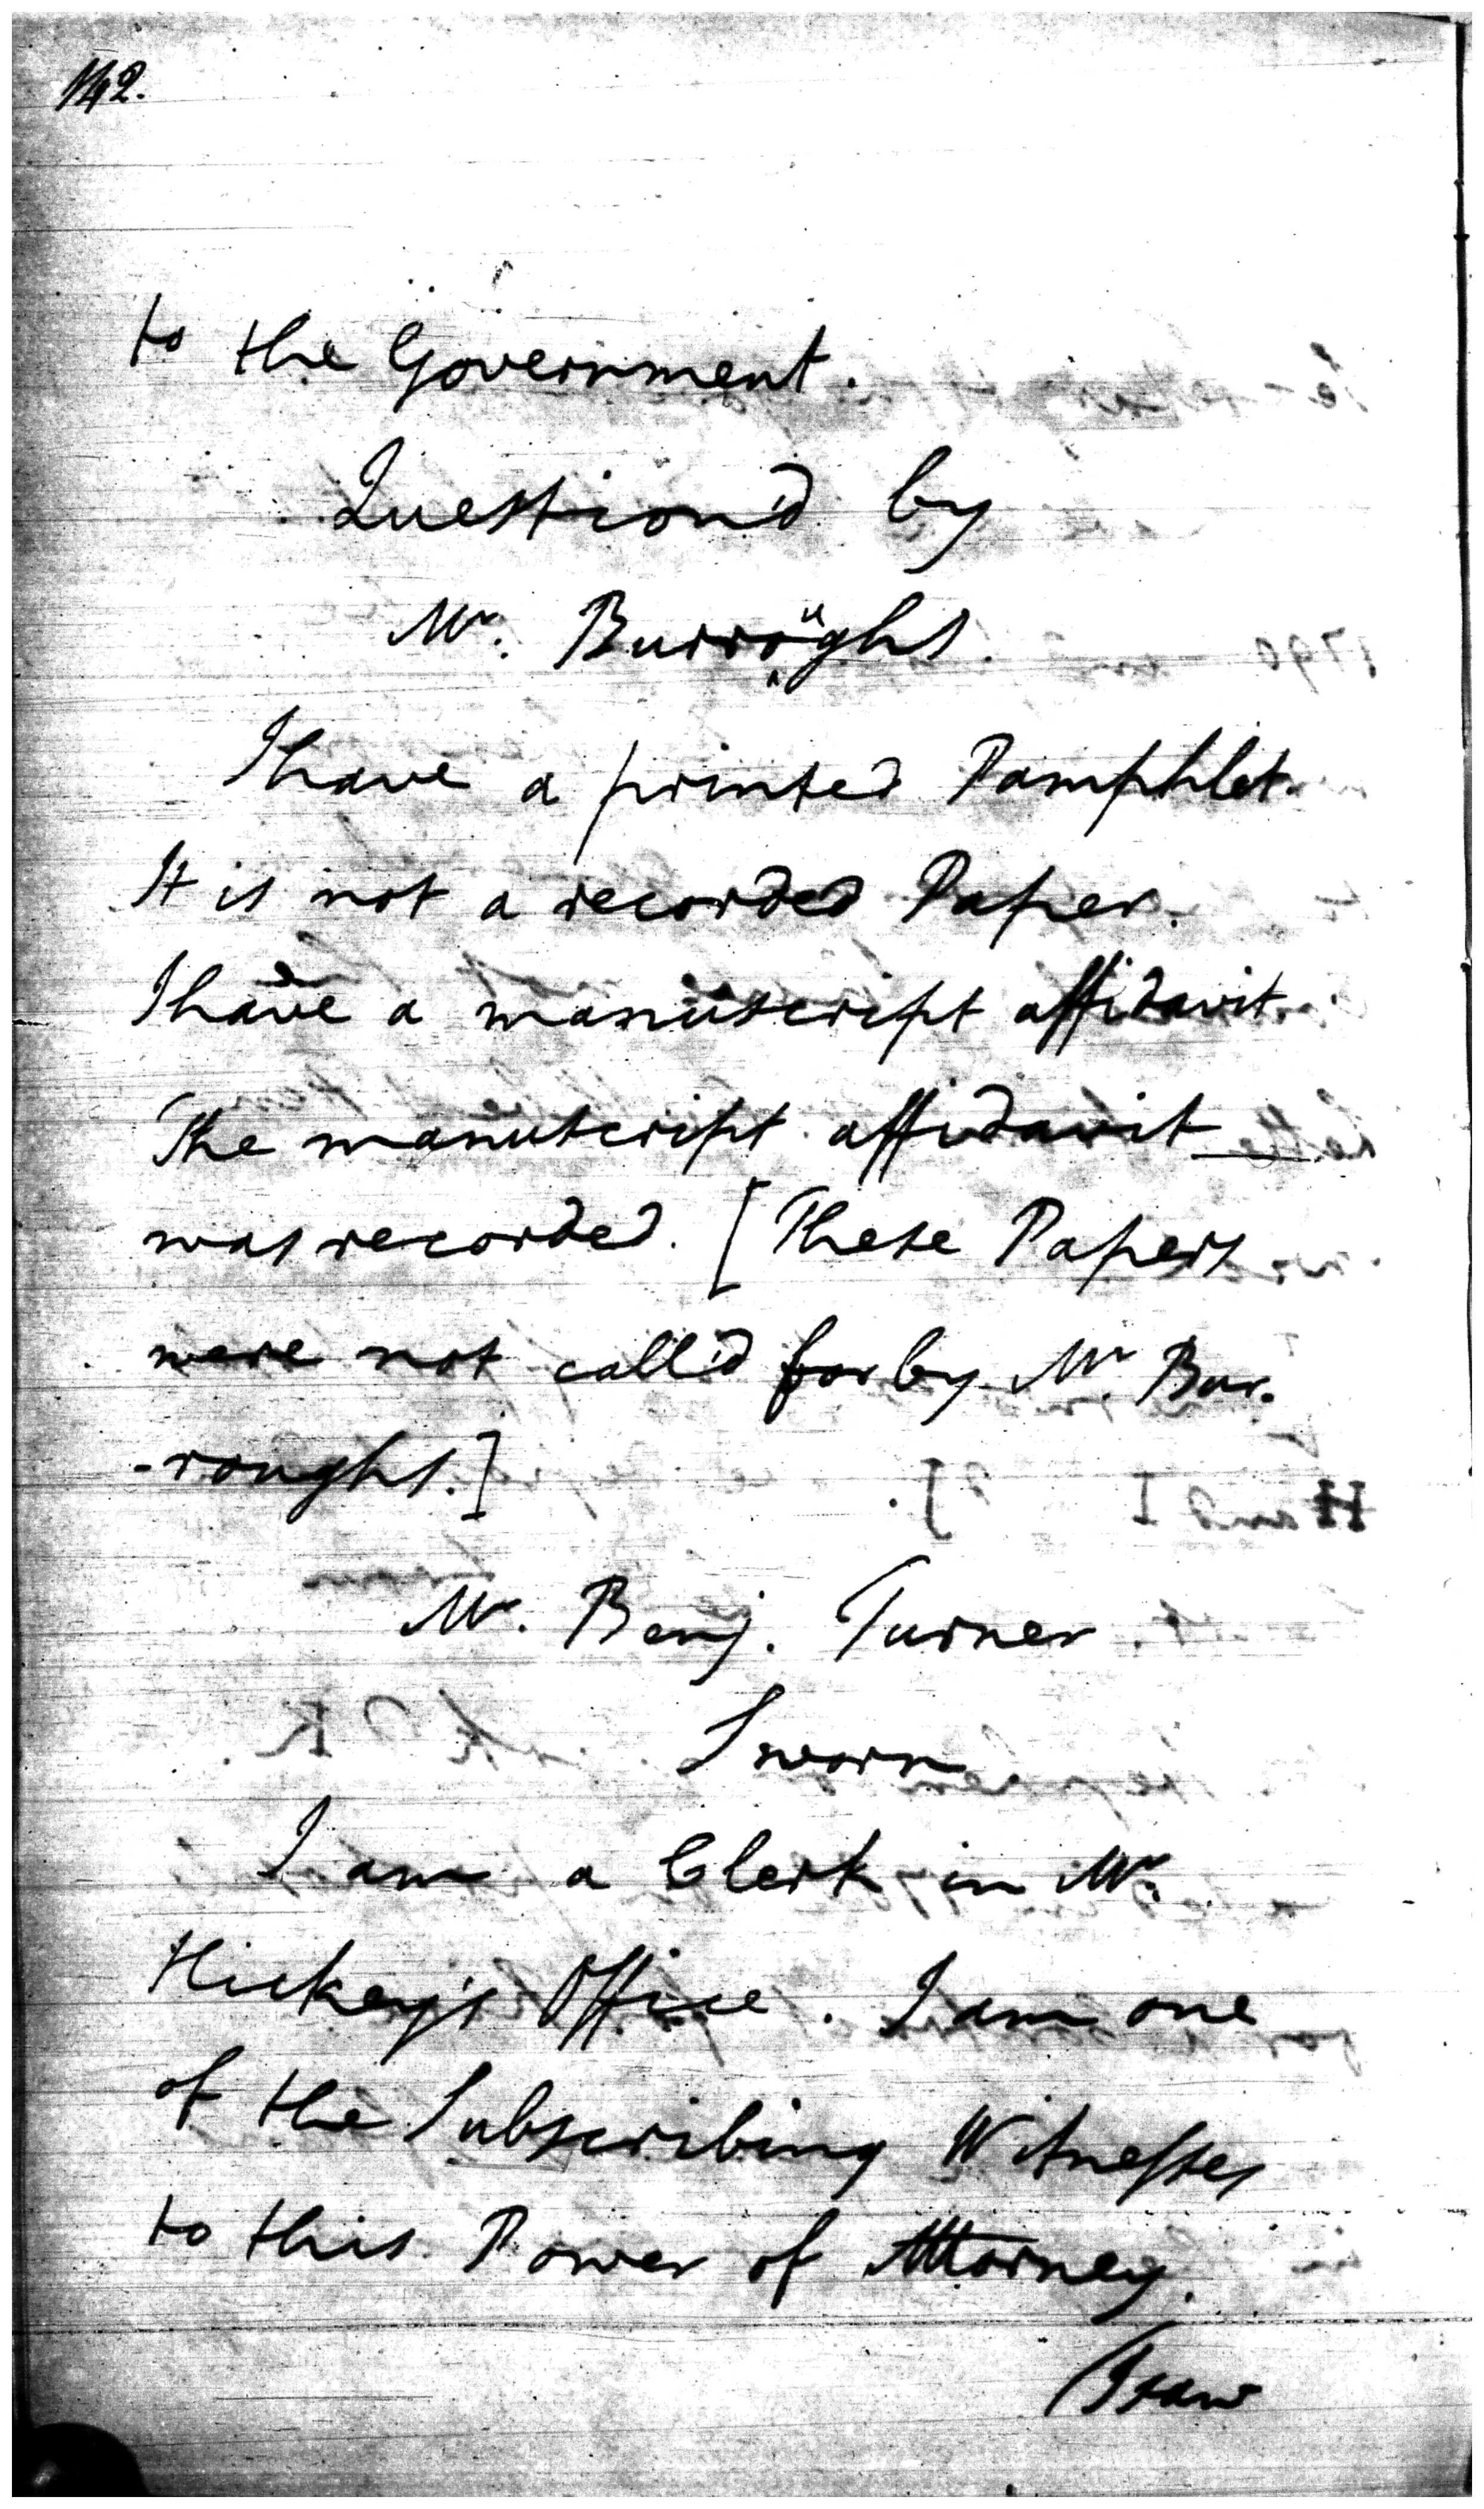 142.
to the Government.
Question'd by
Mr. Burroughs.
I have a printed Pamphlet.
It is not a recorded Paper.
I have a manuscript affidavit.
The manuscript affidavit
was recorded. [These Papers
were not call'd for by Mr. Bur-
-roughs.]
Mr. Benj. Turner
Sworn
I am a Clerk in Mr.
Hickey's Office. I am one
of the Subscribing Witnesses
to this Power of Attorney.
I saw